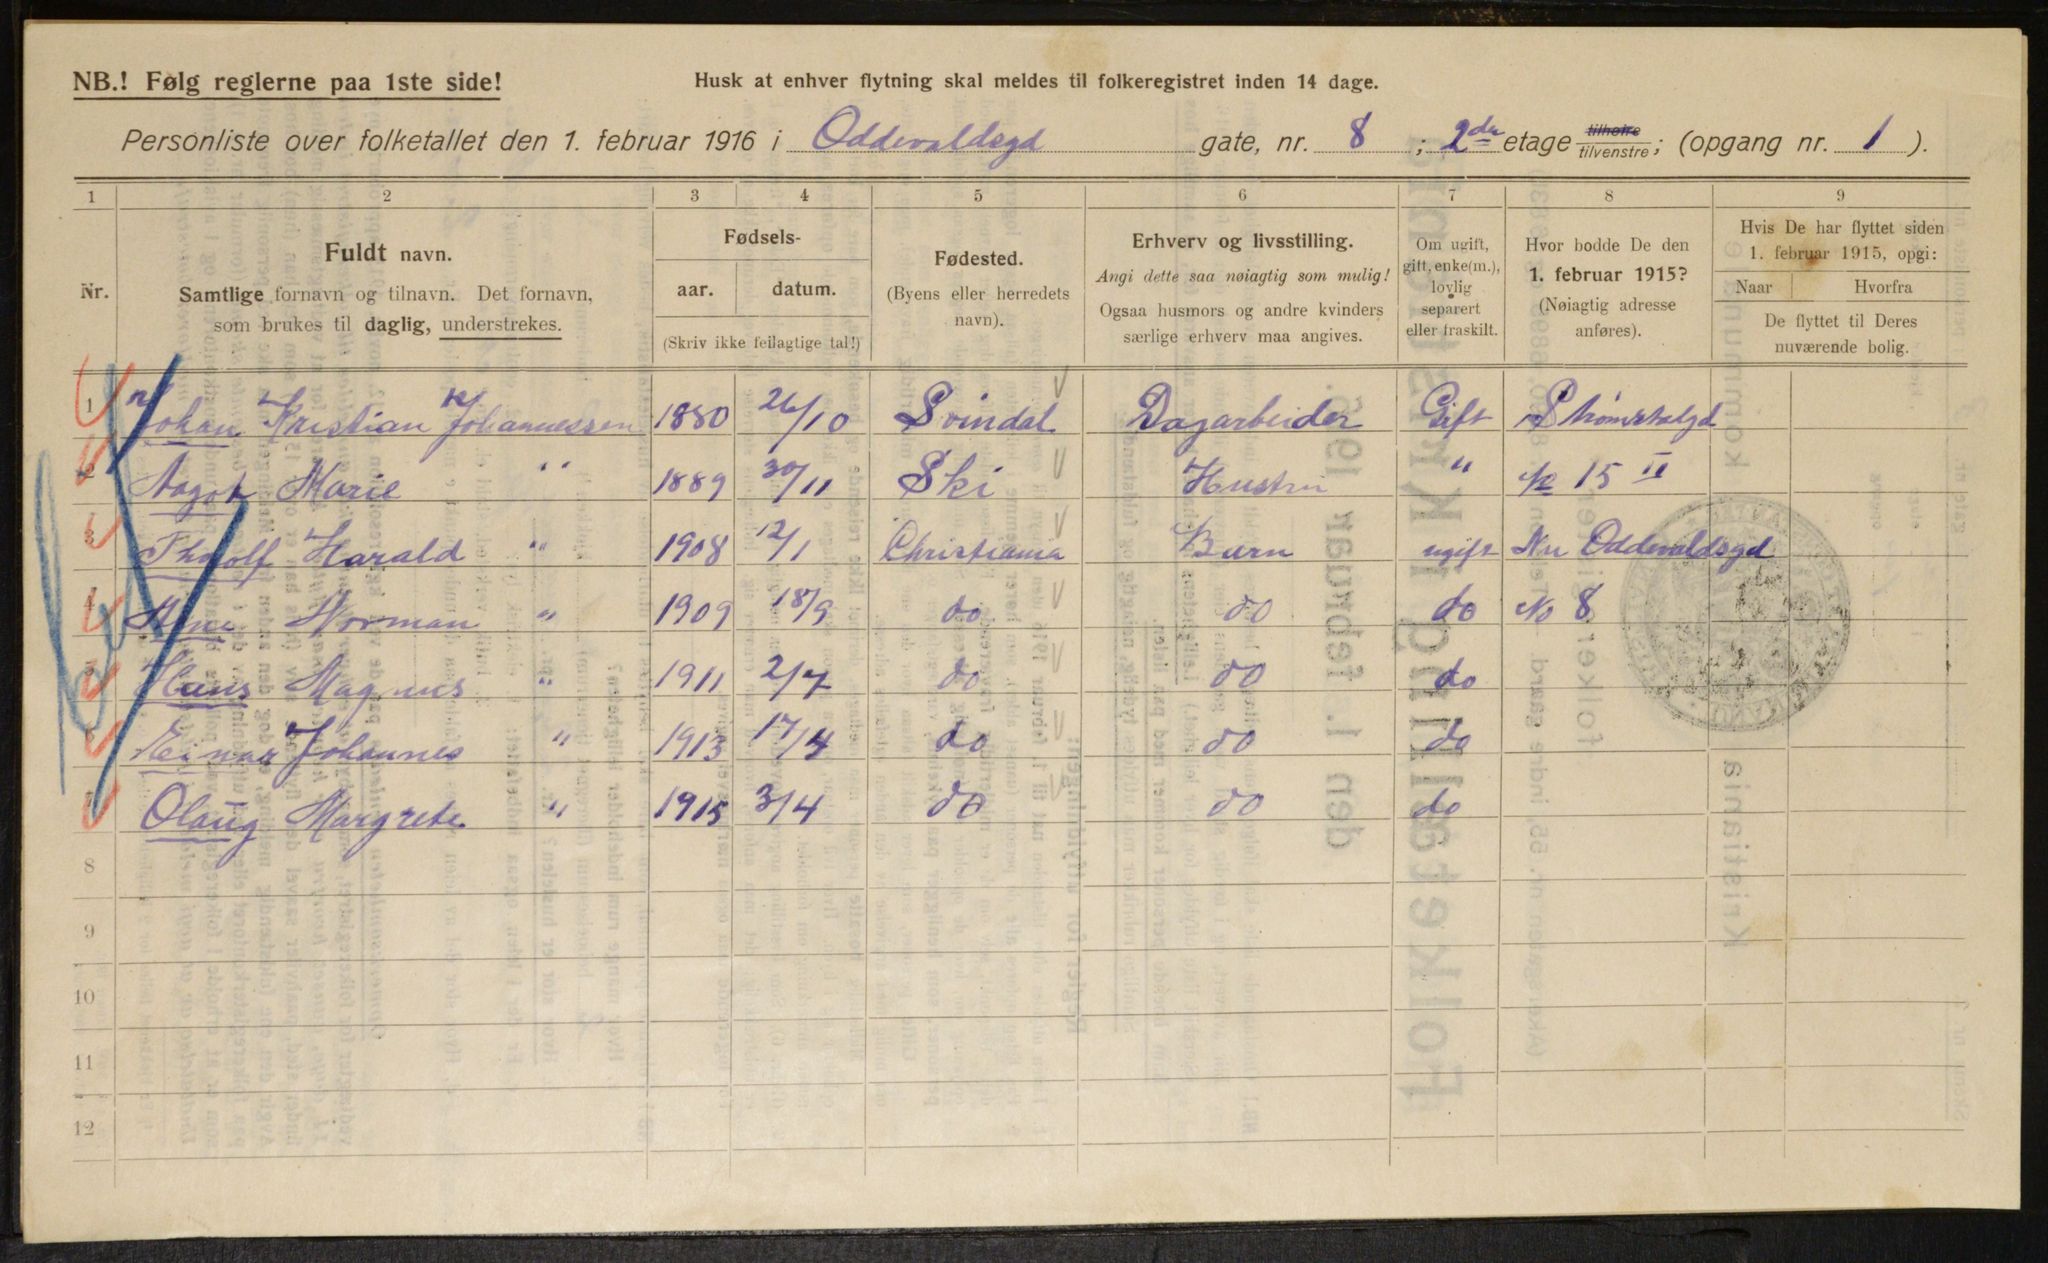 NB.! Følg reglerne paa 1ste side!
Husk at enhver flytning skal meldes til folkeregistret inden 14 dage.
Personliste over folketallet den 1. februar 1916 i Oddevaldsgd gate, nr. 8 ; 2den etage tilhøire tilvenstre; (opgang nr. 1 ).
1 2 3 4 5 6 7 8 9
Nr.
Fuldt navn.
Samtlige fornavn og tilnavn. Det fornavn,
som brukes til daglig, understrekes.
Fødsels-
aar. datum.
(Skriv ikke feilagtige tal!)
Fødested.
(Byens eller herredets
navn).
Erhverv og livsstilling.
Angi dette saa nøiagtig som mulig!
Ogsaa husmors og andre kvinders
særlige erhverv maa angives.
Om ugift,
gift, enke(m.),
lovlig
separert
eller fraskilt.
Hvor bodde De den
1. februar 1915?
(Nøiagtig adresse
anføres).
Hvis De har flyttet siden
1. februar 1915, opgi:
Naar Hvorfra
De flyttet til Deres
nuværende bolig.
1 Johan Kristian Johannessen 1880 26/10 Svindal Dagarbeider Gift Strømstatgd
2 Aagot Marie " 1889 30/11 Ski Hustru " No 15 II
3 Thorolf Harald " 1908 12/1 Christiania Barn ugift Nu Oddevaldsgd
4 Arne Norman " 1909 18/9 do do do No 8
5 Hans Magnus " 1911 2/7 do do do
6 Einar Johannes " 1913 17/4 do do do
7 Olaug Margrete " 1915 3/4 do do do
8
9
10
11
12